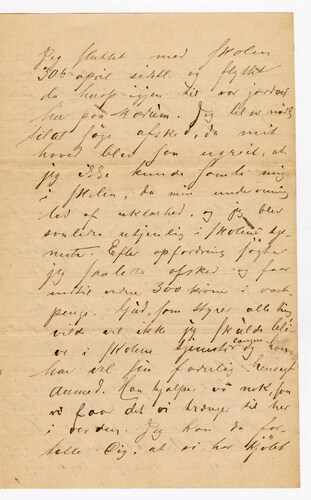 Jeg sluttet med skolen
30te april sidst. og flyttet
da herop igjen til vor jordvei
her paa Modum. Jeg blev nødt
til at søge afsked, da mit
hoved blev saa uroit, at
jeg ikke kunde samle mig
i skolen, da min undervisning
led af uklarhed, og jeg blev
saaledes utjenlig i skolens tje-
neste. Efter opfordring søgte
jeg saaledes afsked og faar
indtil videre 300 kroner i vart-
penge. Gud, som styrer alle ting
vilde vel ikke jeg skulde bli-
ve i skolens tjeneste længer og han
har vel sin faderlig hensigt
dermed. Han hjælper vi nok, saa
vi faar det vi trænger til her
i verden. Jeg kan da for-
telle Dig, at vi har kjøbt